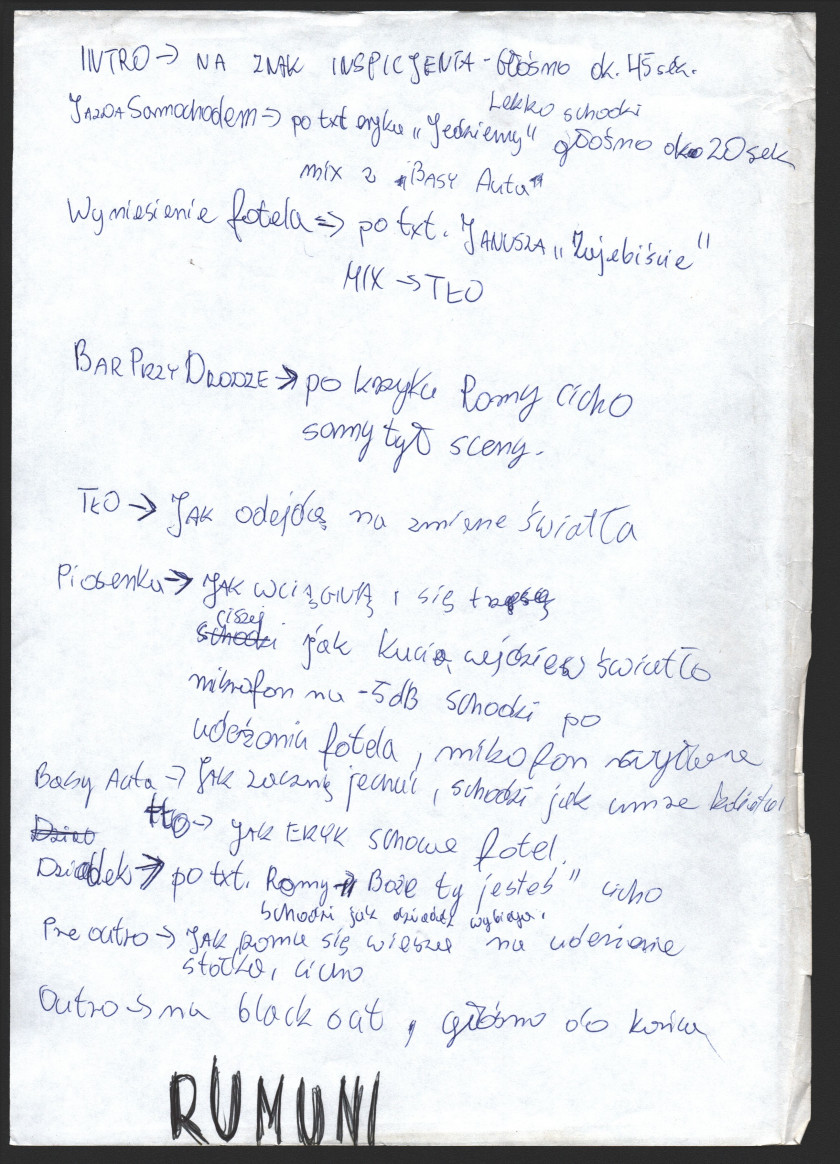 INTRO → NA ZNAK INSPICJENTA - Głośno ok. 45 sek.
Lekko schodki
JAZDA Samochodem → po txt eryka "Jedziemy" głośno oko 20 sek
mix z "BASY Auta"
Wyniesienie fotela → po txt. JANUSZA "Zajebiście"
MIX → TŁO
BAR PRZY DRODZE → po krzyku Romy cicho
samy tył sceny.
TŁO → JAK odejdą na zmiene światła
Piosenka → JAK WCIĄGNĄ i się trzęsą
ciszej
schodzi jak kucią wejdzie światło
mikrofon na -5dB schodki po
udeżaniu fotela, mikofon
Basy Auta → JAK zaczną jechać, schodki jak umrze
tło → JAK ERYK schowa fotel.
Dziad
Dziadek → po txt. Romy → Boże ty jesteś" cicho
Schodzi jak dziadek wybiega.
Pre outro → JAK roma się wiesza na udeżenie
stołka, cicho
Outro → na black out, głośno do końca
RUMUNI